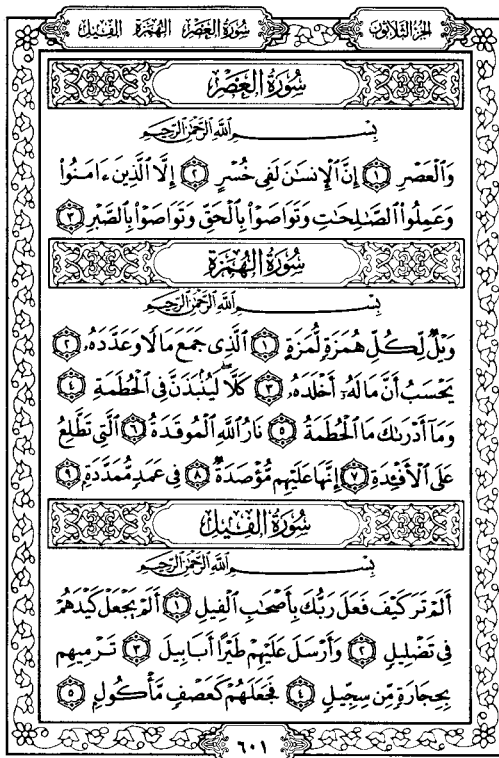 الجزء الثلاثون
سورة العصر الهمزة الفيل
سُورَةُ العَصْرِ
بِسْمِ اللَّهِ الرَّحْمَٰنِ الرَّحِيمِ
وَٱلْعَصْرِ ١ إِنَّ ٱلْإِنسَٰنَ لَفِى خُسْرٍ ٢ إِلَّا ٱلَّذِينَ ءَامَنُوا۟
وَعَمِلُوا۟ ٱلصَّٰلِحَٰتِ وَتَوَاصَوْا۟ بِٱلْحَقِّ وَتَوَاصَوْا۟ بِٱلصَّبْرِ ٣
سُورَةُ الهُمَزَةِ
بِسْمِ اللَّهِ الرَّحْمَٰنِ الرَّحِيمِ
وَيْلٌ لِّكُلِّ هُمَزَةٍ لُّمَزَةٍ ١ ٱلَّذِى جَمَعَ مَالًا وَعَدَّدَهُۥ ٢
يَحْسَبُ أَنَّ مَالَهُۥٓ أَخْلَدَهُۥ ٣ كَلَّا ۖ لَيُنۢبَذَنَّ فِى ٱلْحُطَمَةِ ٤
وَمَآ أَدْرَىٰكَ مَا ٱلْحُطَمَةُ ٥ نَارُ ٱللَّهِ ٱلْمُوقَدَةُ ٦ ٱلَّتِى تَطَّلِعُ
عَلَى ٱلْأَفْـِٔدَةِ ٧ إِنَّهَا عَلَيْهِم مُّؤْصَدَةٌ ٨ فِى عَمَدٍ مُّمَدَّدَةٍۭ ٩
سُورَةُ الفِيلِ
بِسْمِ اللَّهِ الرَّحْمَٰنِ الرَّحِيمِ
أَلَمْ تَرَ كَيْفَ فَعَلَ رَبُّكَ بِأَصْحَٰبِ ٱلْفِيلِ ١ أَلَمْ يَجْعَلْ كَيْدَهُمْ
فِى تَضْلِيلٍ ٢ وَأَرْسَلَ عَلَيْهِمْ طَيْرًا أَبَابِيلَ ٣ تَرْمِيهِم
بِحِجَارَةٍ مِّن سِجِّيلٍ ٤ فَجَعَلَهُمْ كَعَصْفٍ مَّأْكُولٍۭ ٥
٦٠١